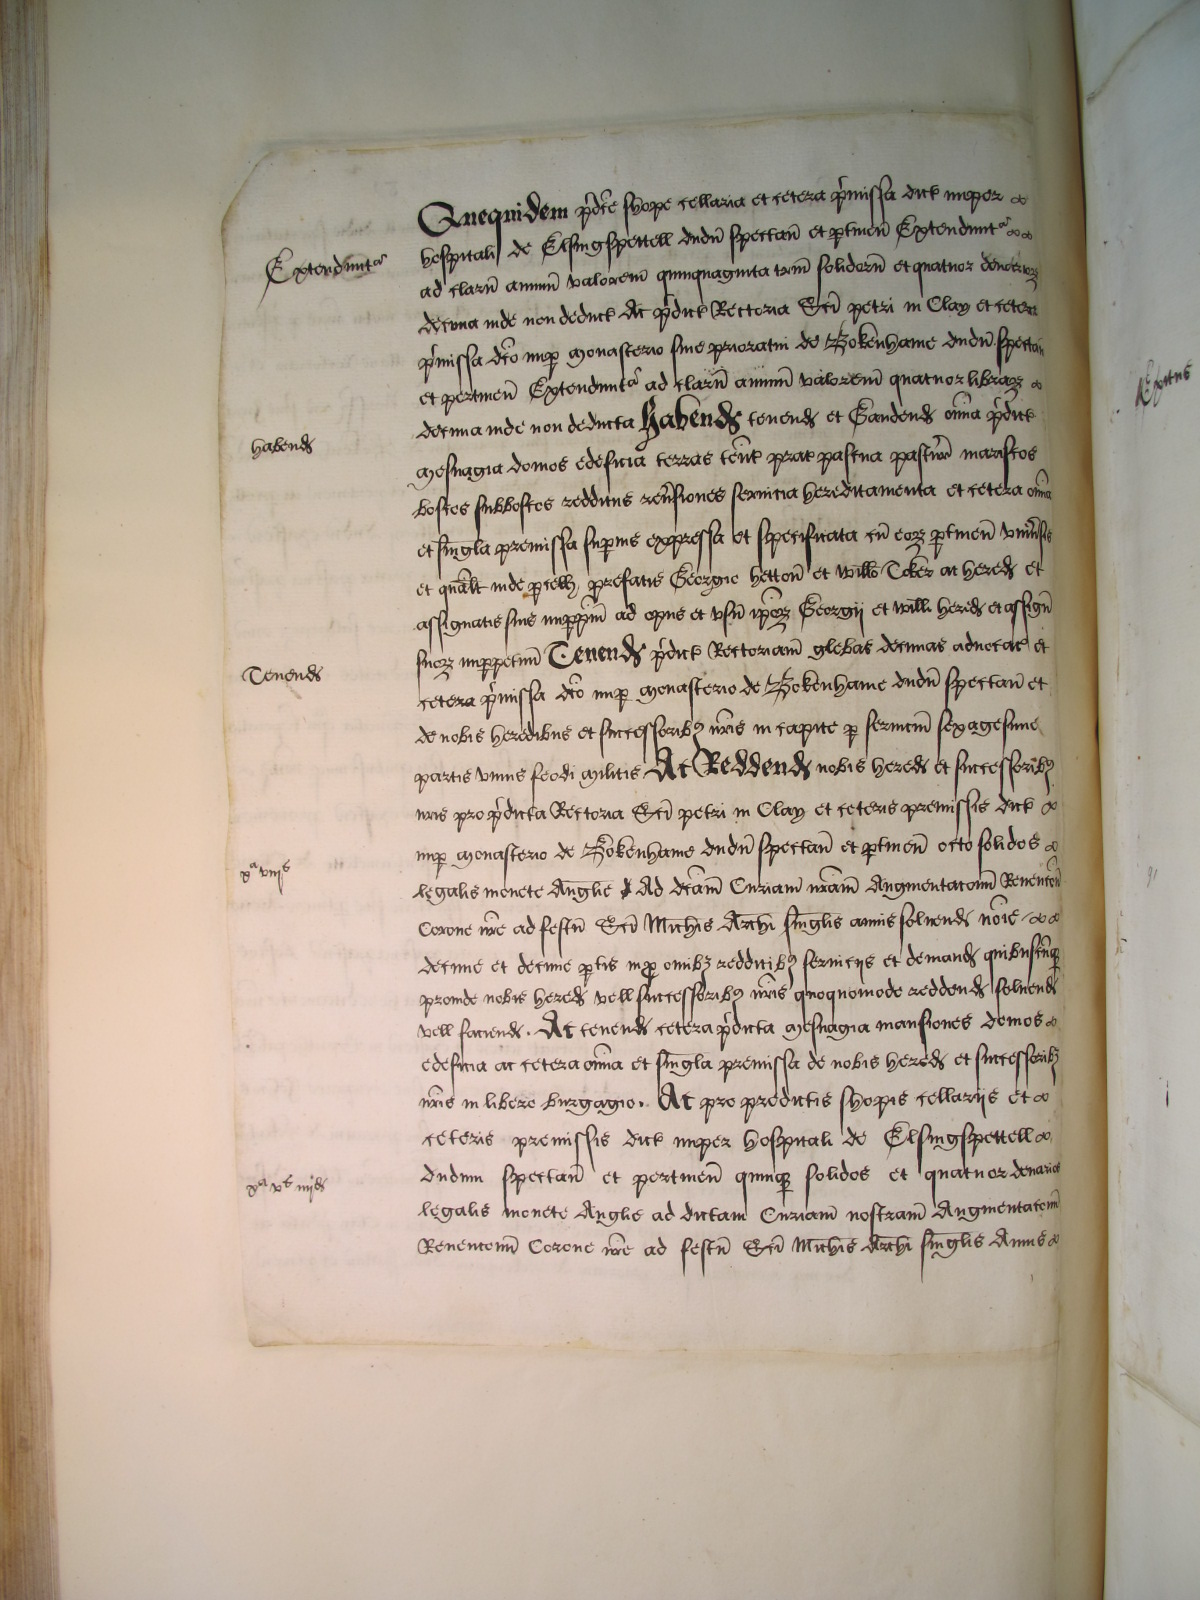 Quequidem p'dce shope cellaria et cetera p'missa dict nuper
Extenduntr
hospitali de Elsingspettell dudu spectan et ptinen Extenduntr
ad claru annuu valorem quinquaginta triu solidoru et quatuor denarioru
decima inde non deduct Ac p'dict Rectoria Sci petri in Clay et cetera
p'missa dco nup monasterio sive prioratui de Bokenhame dudu spectan
et pertinen Extenduntr ad claru annuu valorem quatuor libraru
decima inde non deducta Habend tenend et Gaudend oīa p'dict
Habend
mesuagia domos edeficia terras tent prat pastua pastur mariscos
boscos subboscos redditus revsiones servicia hereditamenta et cetera oīa
et singla premissa superius expressa et specificata cu eoru ptinen univsis
et qualt inde pcell prefatis Georgio hetton et Willo Toker ac hered et
assignatis suis imppm ad opus et usu iporu Georgii et Willi hered et assign
suoru impperm Tenend p'dict Rectoriam glebas decimas advocac et
Tenend
cetera p'missa dco nup monasterio de Bokenhame dudu spectan et
de nobis heredibus et successorib3 nris in capite p serviciu sexagesime
partis unius feodi militis Ac Reddend nobis hered et successorib3
nris pro p'dicta Rectoria Sci petri in Clay et ceteris premissis dict
nup monasterio de Bokenhame dudu spectan et ptinen octo solidos
xa viijs
legalis monete Anglie Ad dcam Curiam nram Augmentacom Revencon
Corone nre ad festu Sci Michis Archi singlis annis solvend noie
decime et decime ptis inp omib3 redditib3 serviciis et demand quibuscuq3
proinde nobis hered vell successorib3 nris quoquomodo reddend solvend
vell faciend. Ac tenend cetera p'dicta mesuagia mansiones domos
edeficia ac cetera oīa et singla premissa de nobis hered et successorib3
nris in libero burgagio. Ac pro predictis shopis cellariis et
ceteris premissis dict nuper hospitali de Elsingspettell
xa vs iiijd
dudum spectan et pertinen quinq3 solidos et quatuor denarios
legalis monete Anglie ad dictam Curiam nostram Augmentacom
Revencom Corone nre ad festu Sci Michis Archi singlis Annis